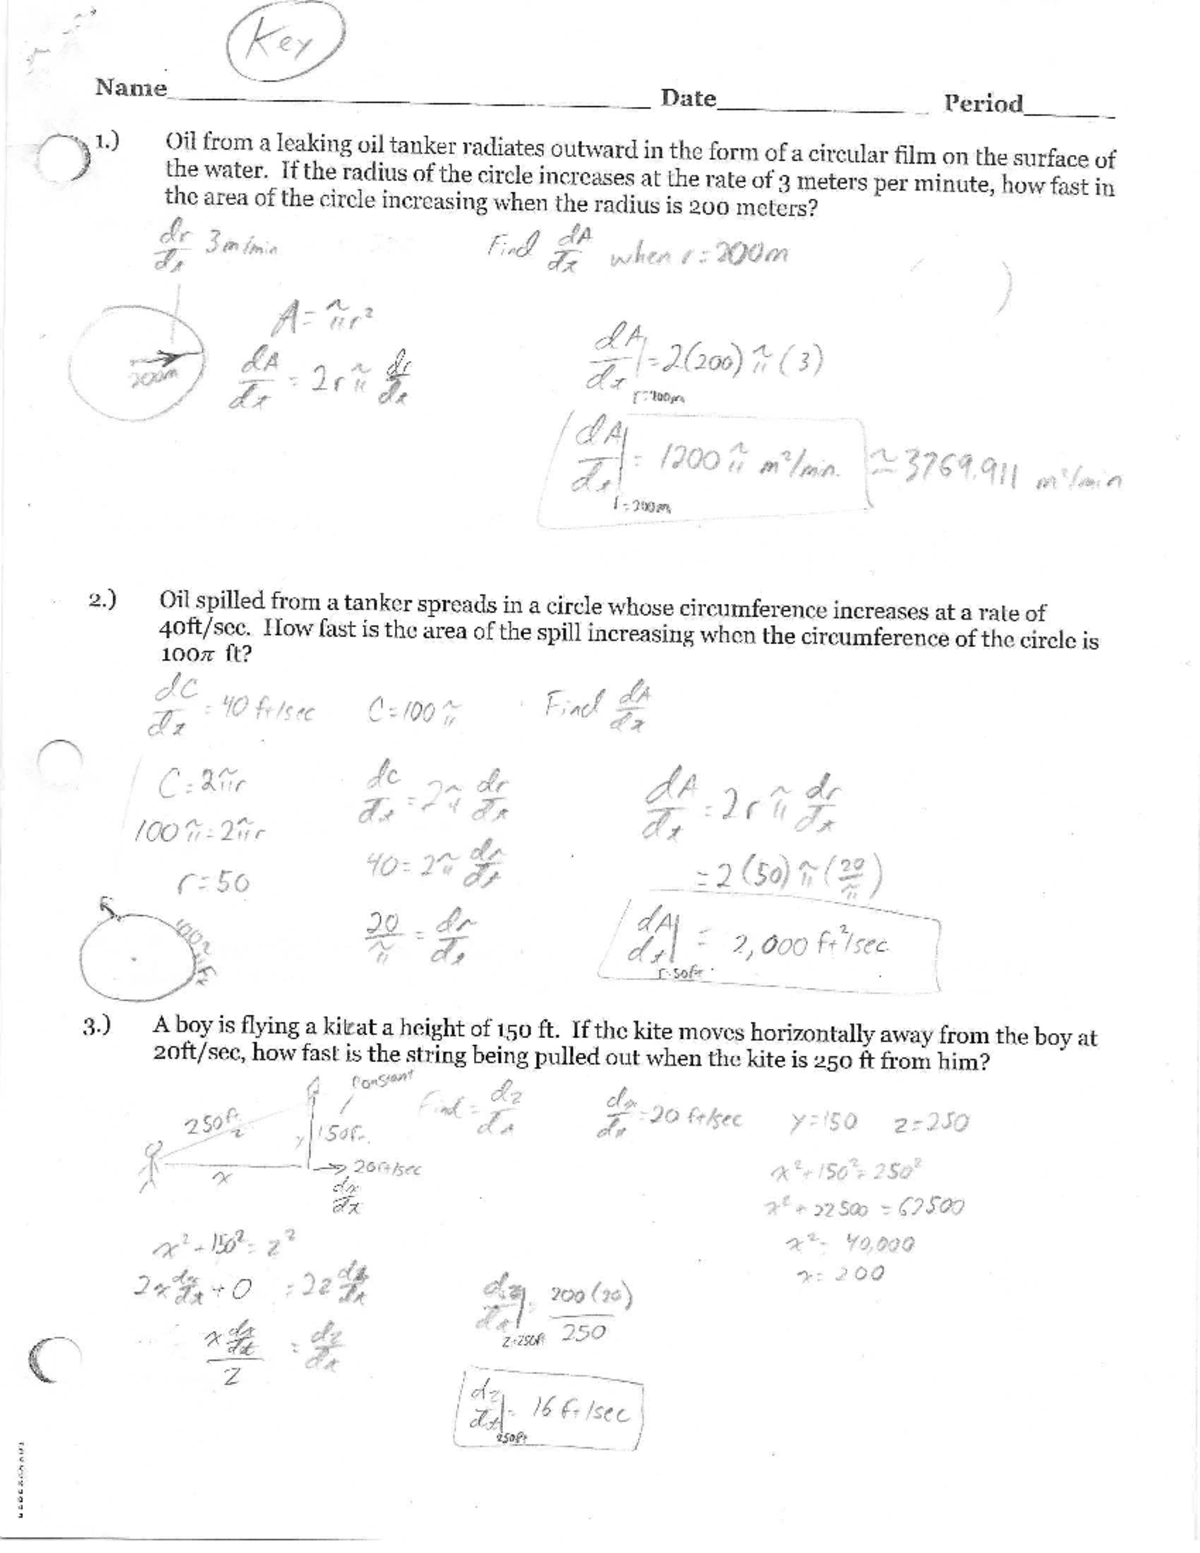 Key
Name Date Period
1.) Oil from a leaking oil tanker radiates outward in the form of a circular film on the surface of
the water. If the radius of the circle increases at the rate of 3 meters per minute, how fast in
the area of the circle increasing when the radius is 200 meters?
dr/dt 3m/min Find dA/dt when r=200m
A=πr²
200m
dA/dt = 2rπ dr/dt
dA/dt| = 2(200)π(3)
r=200m
dA/dt| = 1200π m²/min. ≃3769.911 m²/min
r=200m
2.) Oil spilled from a tanker spreads in a circle whose circumference increases at a rate of
40ft/sec. How fast is the area of the spill increasing when the circumference of the circle is
100π ft?
dC/dt = 40 ft/sec C=100π Find dA/dt
C=2πr dC/dt = 2π dr/dt dA/dt = 2rπ dr/dt
100π=2πr 40=2π dr/dt = 2(50)π(20/π)
r=50
100π ft
20/π = dr/dt dA/dt| = 2,000 ft²/sec
r=50ft
3.) A boy is flying a kite at a height of 150 ft. If the kite moves horizontally away from the boy at
20ft/sec, how fast is the string being pulled out when the kite is 250 ft from him?
constant
Find = dz/dt dx/dt=20 ft/sec y=150 z=250
250ft z y 150ft.
x 20ft/sec
dx/dt
x²+150²=250²
x²+22500=62500
x²+150²=z² x²=40,000
2x dx/dt+0 = 2z dz/dt x=200
dz/dt| = 200(20)/250
z=250ft
x dx/dt / z = dz/dt
dz/dt| = 16 ft/sec
250ft